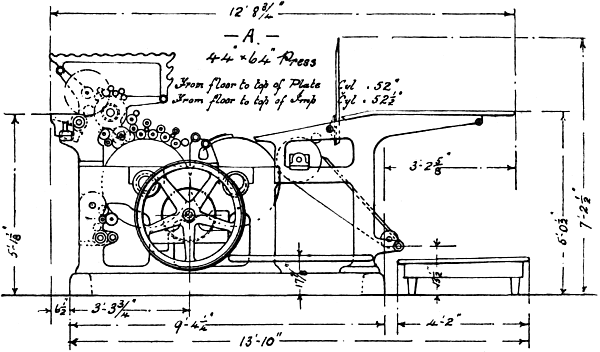 12' 8 3/4"
— A —
44" × 64" Press
From floor to top of Plate Cyl. 52"
From floor to top of Imp Cyl. 52 1/2"
3'-2 5/8"
5'-1 1/8"
6'-0 3/4"
7'-2 1/2"
6 1/2"
3'-3 3/4"
9'-4 1/4"
4'-2"
13'-10"